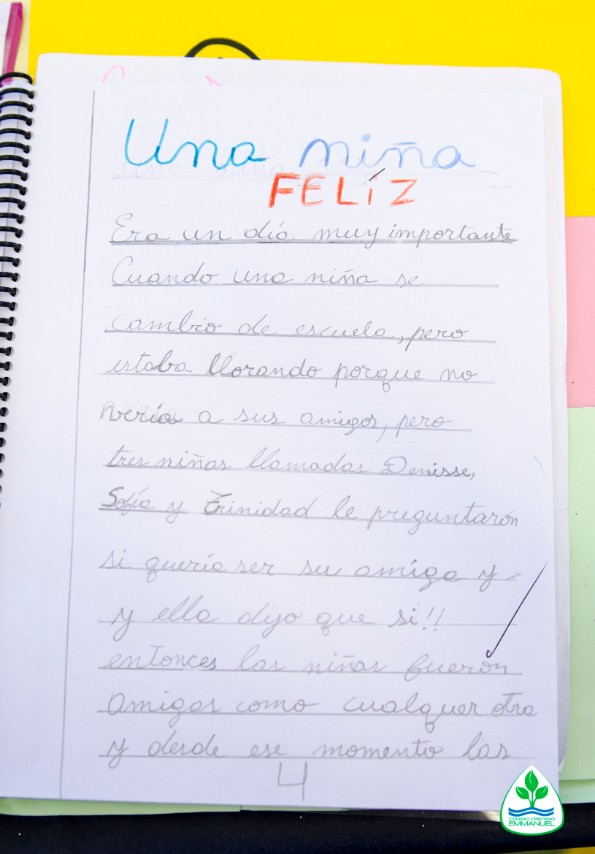 Una niña
FELÍZ
Era un día muy importante
Cuando una niña se
cambio de escuela, pero
estaba llorando porque no
vería a sus amigos, pero
tres niñas llamadas Denisse,
Sofía y Trinidad le preguntarón
si quería ser su amiga y
y ella dijo que si!!
entonces las niñas fuerón
amigas como cualquer otra
y desde ese momento las
4
COLEGIO CRISTIANO
EMMANUEL